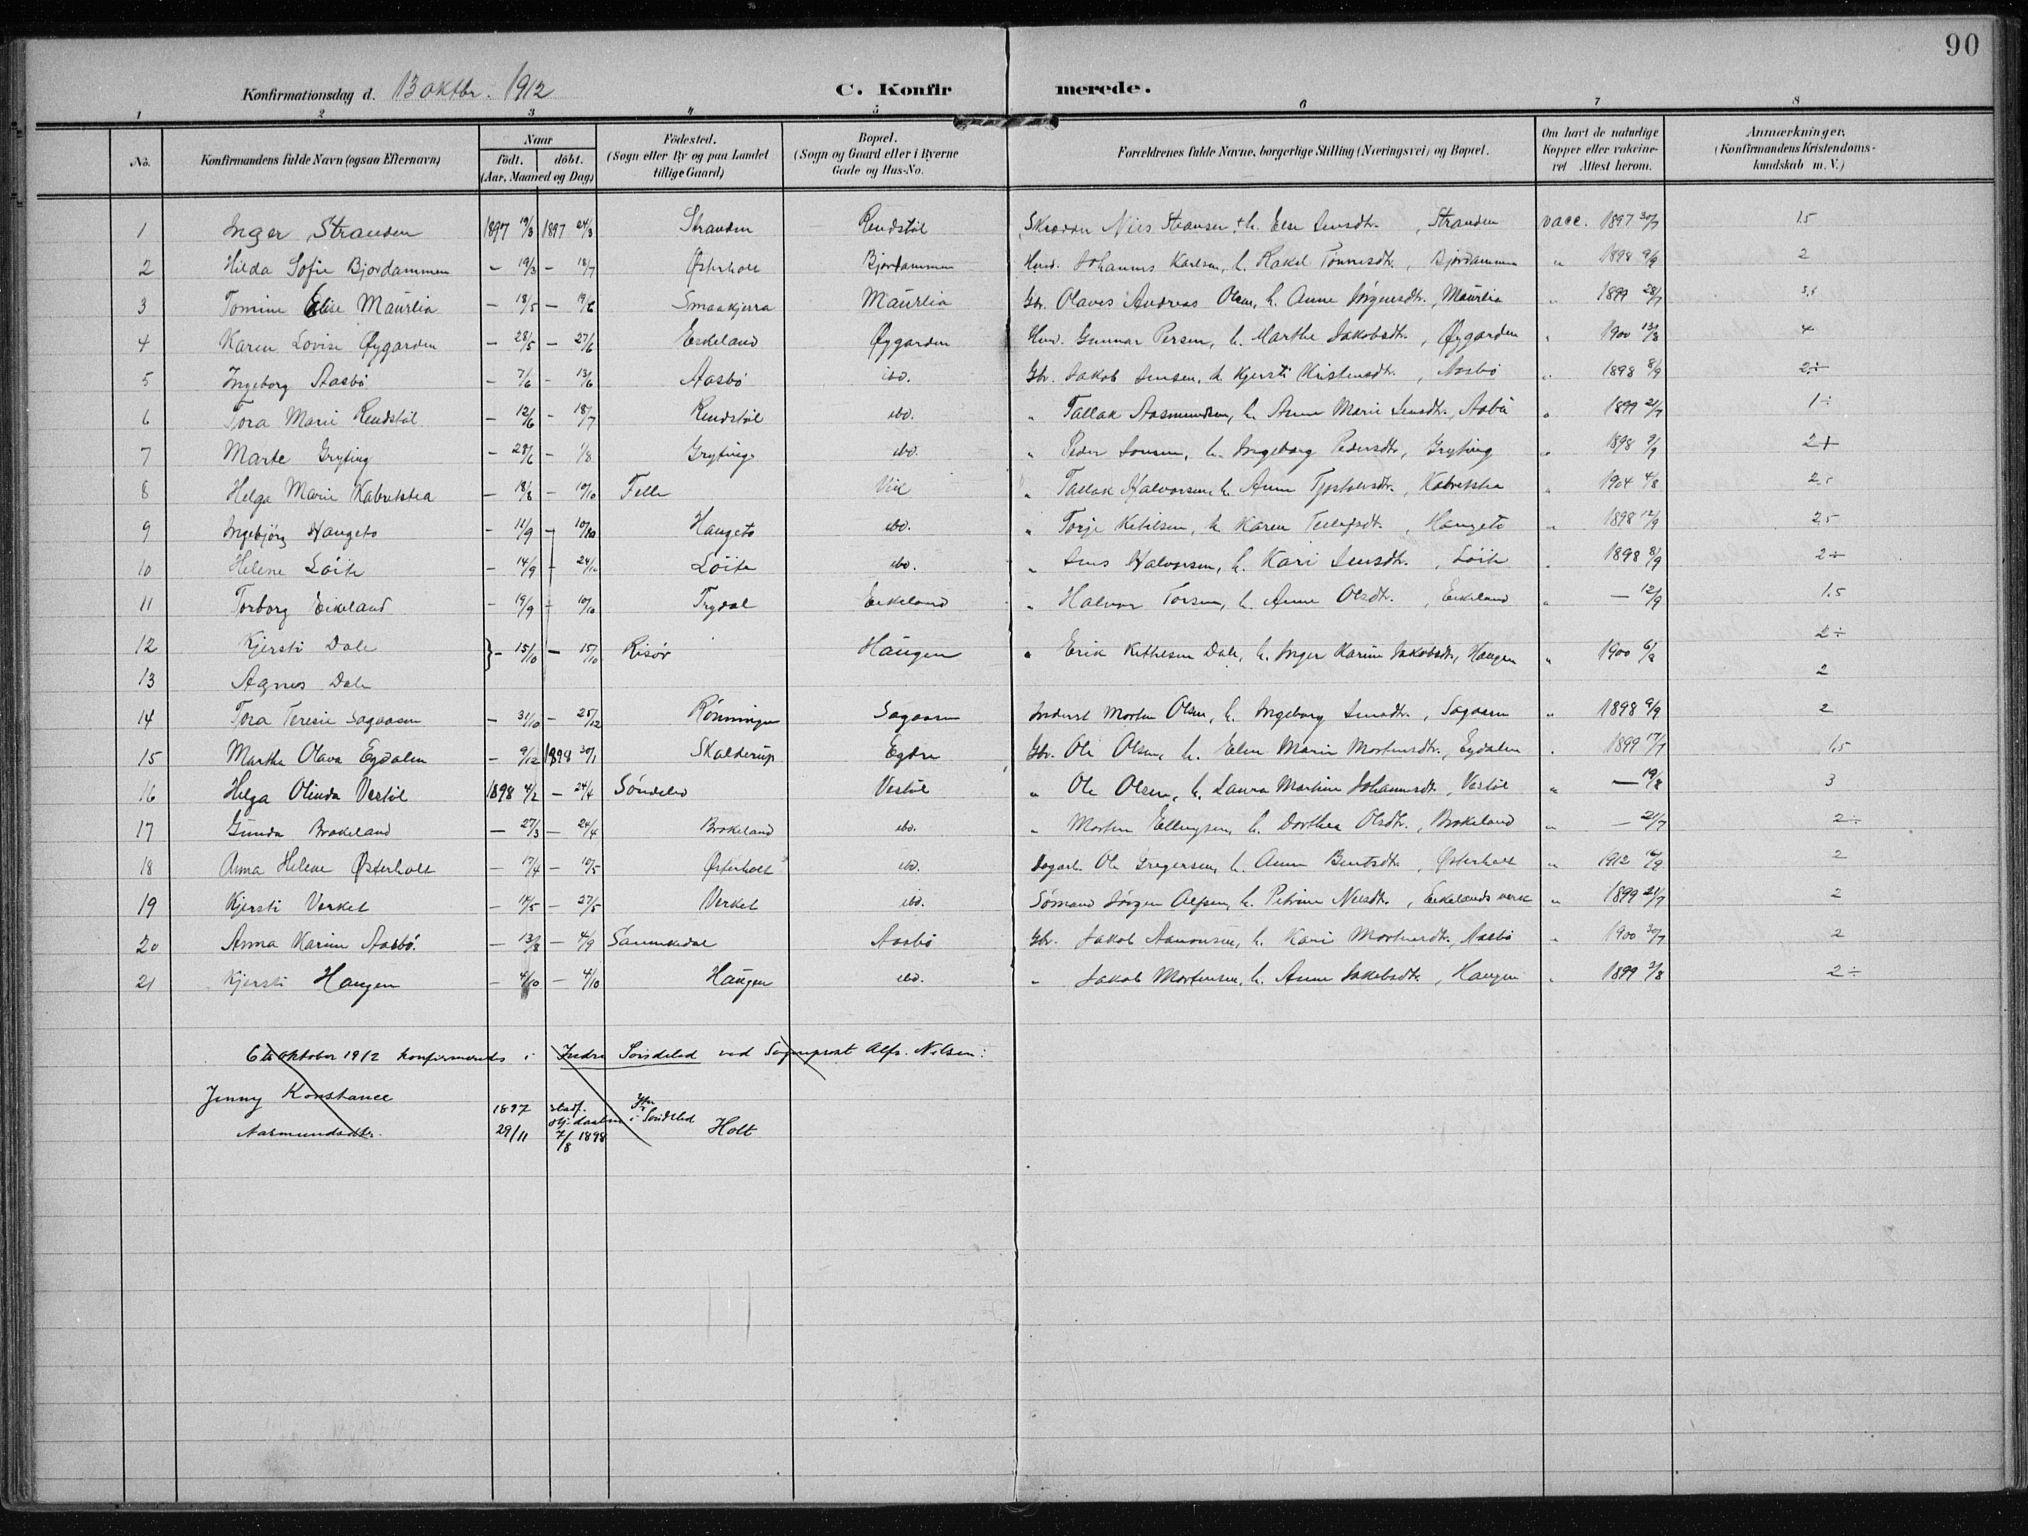 90
Konfirmationsdag d. 13 oktbr. 1912 C. Konfir merede.
1 2 3 4 5 6 7 8
No. Konfirmandens fulde Navn (ogsaa Efternavn) Naar født. døbt. (Aar, Maaned og Dag) Födested. (Sogn eller By og paa Landet tillige Gaard) Bopæl. (Sogn og Gaard eller i Byerne Gade og Hus-No. Forældrenes fulde Navne, borgerlige Stilling (Næringsvei) og Bopæl. Om havt de naturlige Kopper eller vakcineret Attest herom. Anmærkninger. (Konfirmandens Kristendomskundskab m. V.)
1 Inger Stranden 1897 19/3 1897 24/3 Stranden Rendstöl Nils h. Else Jensdtr., Stranden vacc. 1897 30/7 1.5
2 Hilda Sofie Bjordammen — 19/3 — 18/7 Østerholt Bjordammen Husm. Johannes Karlsen, h. Rakel Tønnesdtr., Bjordammen " 1898 9/9 2
3 Tomine Elise Maurlia — 18/5 — 19/6 Smaakjerra Maurlia Gbr. Olaves Andreas Olsen, h. Anne Jørgensdtr., Maurlia " 1899 28/7
4 Karen Lovise Øygarden — 28/5 — 27/6 Eskeland Øygarden Husm. Gunnar Persen, h. Marthe Jakobsdtr., Øygarden " 1900 13/8 4
5 Ingeborg Aasbö — 7/6 — 13/6 Aasbö ibd. Gbr. Jakob Jensen, h. Kjersti Kristensdtr., Aasbö " 1898 8/9 2÷
6 Tora Marie Rendstöl — 12/6 — 18/7 Rendstöl ibd. " Tallak Aasmundsen, h. Anne Marie Jensdtr., Aabö " 1899 21/7 1÷
7 Marte Gryting — 28/6 — 1/8 Gryting ibd. " Peder Jonsen, h. Ingeborg Pedersdtr., Gryting " 1898 9/9 2+
8 Helga Marie — 18/8 — 10/10 Felle Vik " Tallak Halvorsen, h. Anne Tjostolvsdtr., " 1904 4/8 2.5
9 Ingebjörg Haugeto — 11/9 — 10/10 Haugeto ibd. " Torje Ketilsen, h. Karen Teilefsdtr. Haugeto " 1898 12/9 2.5
10 Helene Löite — 14/9 — 24/10 Löite ibd. " Jens Halvorsen, h. Kari Jensdtr., Löite " 1898 8/9 2÷
11 Torborg Eikeland — 19/9 — 10/10 Trydal Eikeland " Halvor Torsen, h. Anne Olsdtr., Eikeland " — 12/9 1.5
12 Kjersti Dale } — 15/10 — 15/10 Risør Haugen " Erik Kittelsen Dale, h. Inger Karine Jakobsdtr., Haugen " 1900 6/8 2÷
13 Agnes Dale 2
14 Tora Teresie Sagaasen — 31/10 — 25/12 Rönningen Sagaasen Inderst Morten Olsen, h. Ingeborg Jensdtr., Sagaasen " 1898 9/9 2
15 Marthe Olava Egdalen — 9/12 1898 30/1 Skalderup Egdalen Gbr. Ole Olsen, h. Elen Marie Mortensdtr., Egdalen " 1899 17/7 1.5
16 Helga Olinda Vestöl 1898 4/2 — 24/4 Söndeled Vestöl " Ole Olsen, h. Laura Martine Johannesdtr., Vestöl " — 19/8 3
17 Gunda Brokeland — 27/3 — 24/4 Brokeland ibd. " Morten Ellingsen, h. Dorthea Olsdtr., Brokeland " — 21/7 2÷
18 Anna Helene Østerholt — 17/4 — 10/5 Østerholt ibd. Dagarb. Ole Gregersen, h. Anne Bentsdtr., Østerholt " 1912 16/9 2
19 Kjersti Verket — 14/5 — 27/5 Verket ibd. Sömand Jörgen Alfsen, h. Petrine Nilsdtr., Eikelands verk " 1899 21/7 2
20 Anna Karine Aasbö. — 13/8 — 4/9 Sannikedal Aasbö Gbr. Jakob Aanonsen, h. Kari Mortensdtr., Aasbö " 1900 30/7 2
21 Kjersti Haugen — 4/10 — 4/10 Haugen ibd. " Jakob Mortensen, h. Anne Jakobsdtr., Haugen " 1899 3/8 2÷
6te oktober 1912 konfirmeredes i Indre Söndeled ved Sogneprest Alfr. Nilsen:
Jenny Konstance
Aasmundsdtr. 1897 29/11 stadf. 7/8 1898 i Söndeled Holt